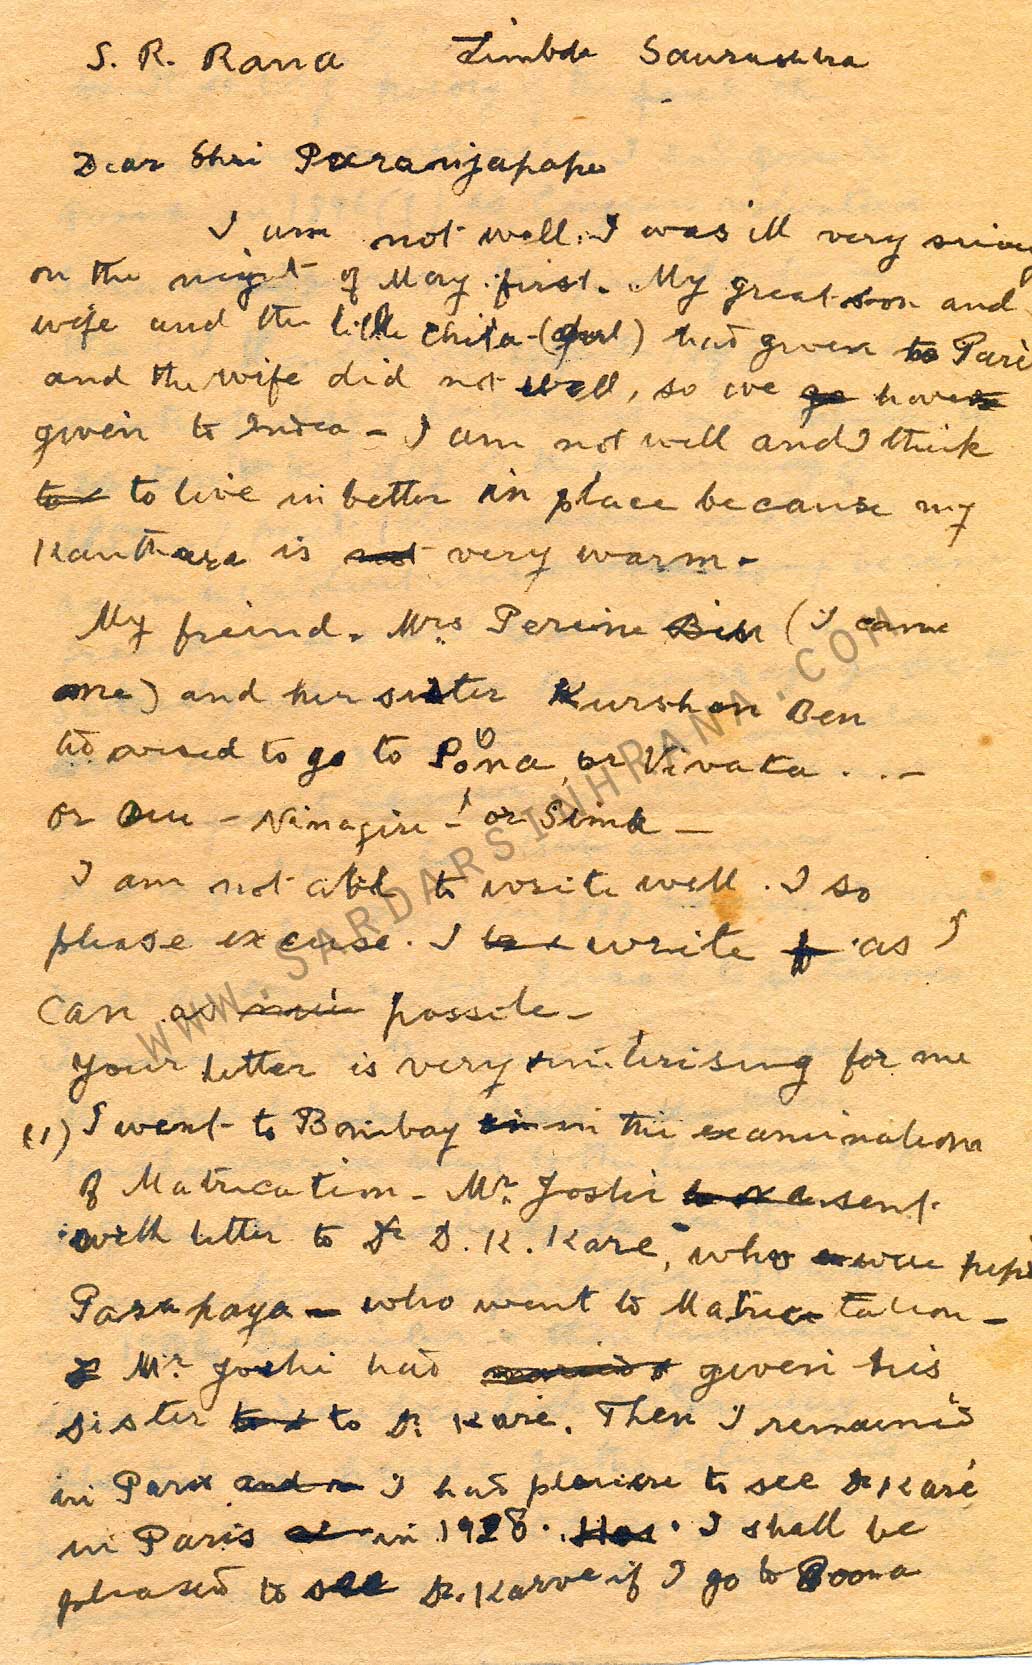 S. R. Rana Limbda Saurashtra
Dear Shri
I am not well. I was ill very
on the night of May first. My great son and
wife and the little child (girl) had given to
and the wife did not well, so we have
given to India - I am not well and I think
to live in better in place because my
is not very warm -
My freind. Mrs Perine Ben (I came
one) and her sister Kurshen Ben
to go to Poona or
or - or Simla -
I am not able to write well. I so
please excuse. I write as I
can as possile -
Your letter is very interising for me
(1) I went to Bombay in the examinations
of Matrication - Mr. Joshi sent
with letter to Dr D. K. Kare, who were
who went to
Mr. Joshi had given his
sister to Dr Kare. Then I remained
in Paris and I had plesiere to see Dr Kare
in Paris in 1928. I shall be
pleased to see Dr. Karve if I go to Poona
WWW.SARDARSINHRANA.COM